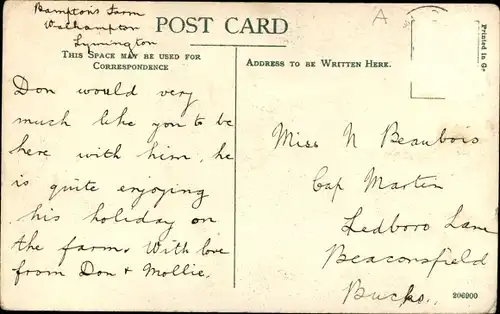 Bampton's Farm
Walhampton
Lymington
A
POST CARD
THIS SPACE MAY BE USED FOR
CORRESPONDENCE
ADDRESS TO BE WRITTEN HERE.
Printed in Ge
Don would very
much like you to be
here with him, he
is quite enjoying
his holiday on
the farm. With love
from Don & Mollie.
Miss N Beaubois
Cap Martin
Ledboro Lane
Beaconsfield
Bucks.
206900